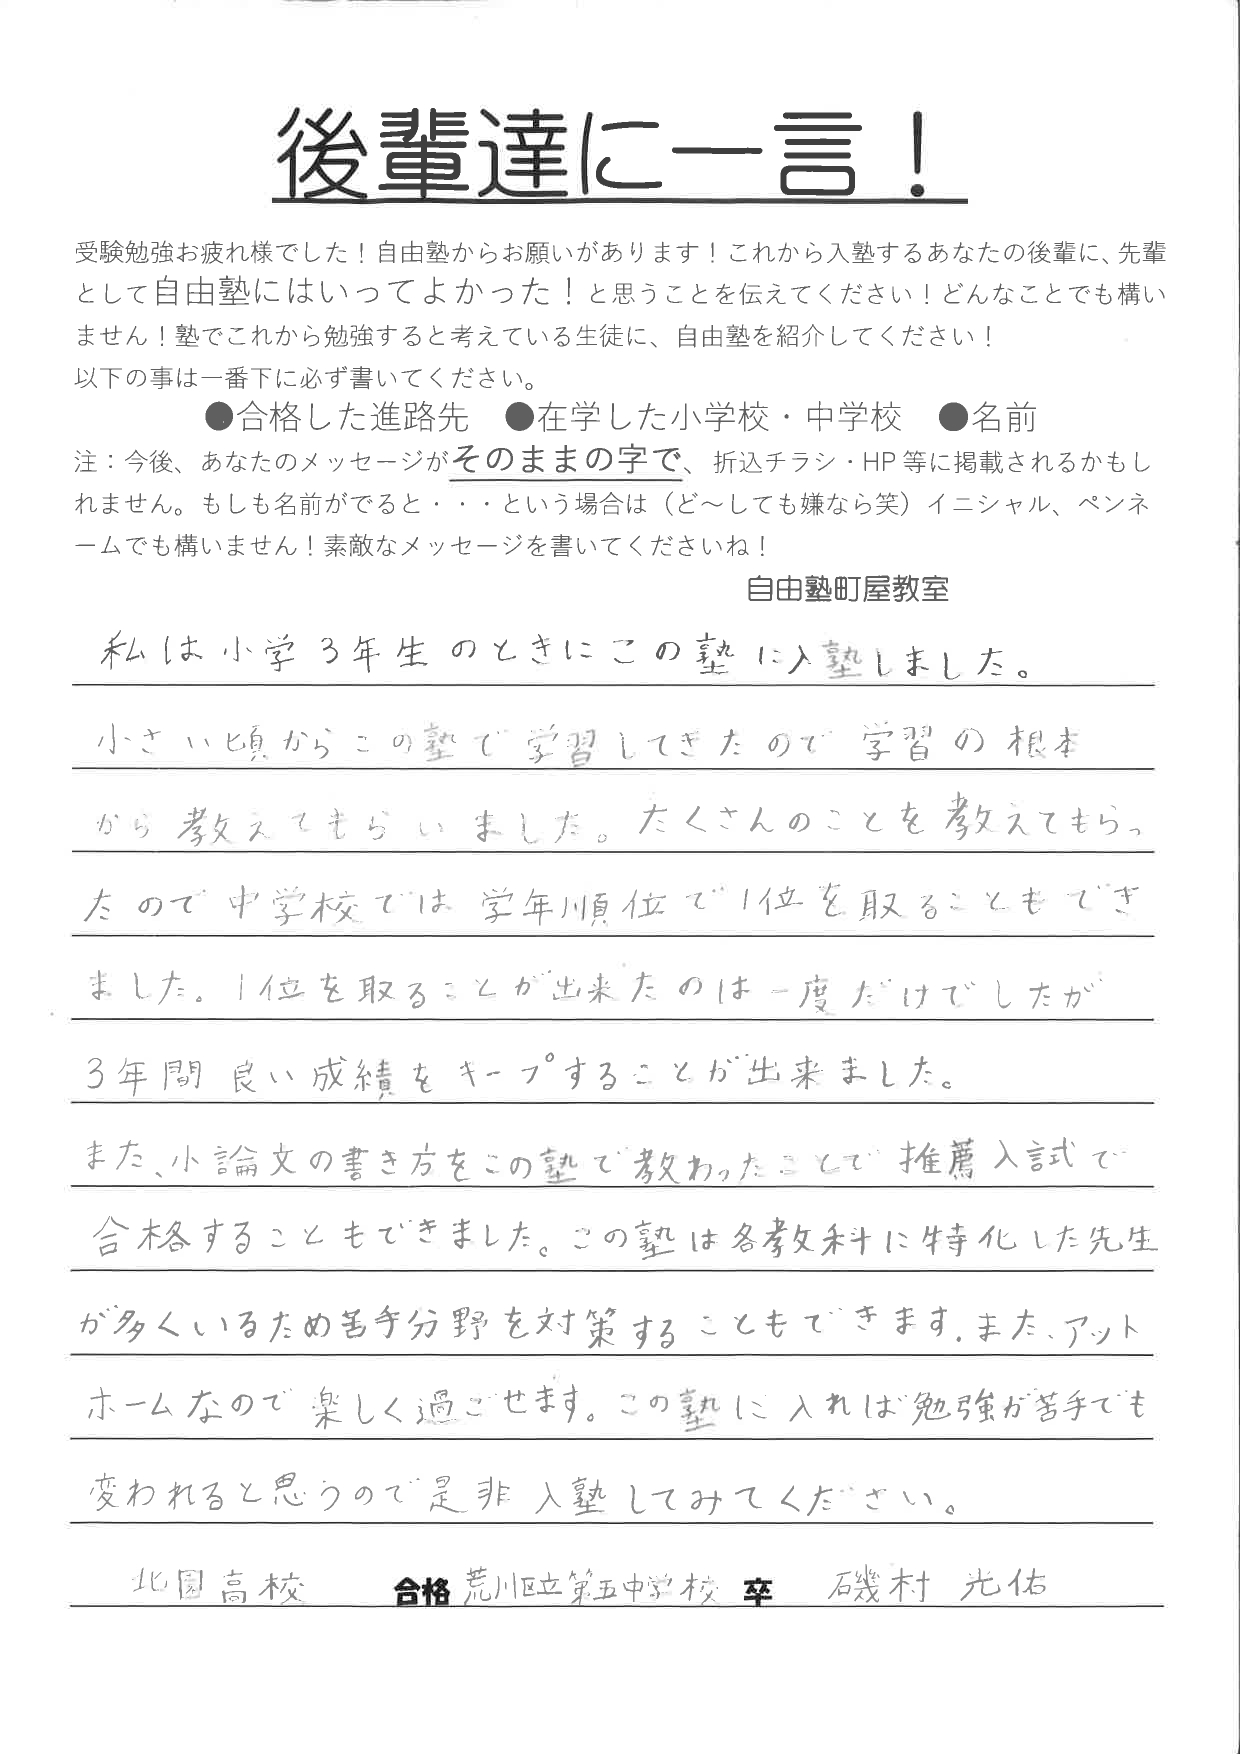 後輩達に一言！
受験勉強お疲れ様でした！自由塾からお願いがあります！これから入塾するあなたの後輩に、先輩
として自由塾にはいってよかった！と思うことを伝えてください！どんなことでも構い
ません！塾でこれから勉強すると考えている生徒に、自由塾を紹介してください！
以下の事は一番下に必ず書いてください。
●合格した進路先　●在学した小学校・中学校　●名前
注：今後、あなたのメッセージがそのままの字で、折込チラシ・HP 等に掲載されるかもし
れません。もしも名前がでると・・・という場合は（ど～しても嫌なら笑）イニシャル、ペンネ
ームでも構いません！素敵なメッセージを書いてくださいね！
自由塾町屋教室
私は小学3年生のときにこの塾に入塾しました。
小さい頃からこの塾で学習してきたので学習の根本
から教えてもらいました。たくさんのことを教えてもらっ
たので中学校では学年順位で1位を取ることもでき
ました。1位を取ることが出来たのは一度だけでしたが
3年間良い成績をキープすることが出来ました。
また、小論文の書き方をこの塾で教わったことで推薦入試で
合格することもできました。この塾は各教科に特化した先生
が多くいるため苦手分野を対策することもできます。また、アット
ホームなので楽しく過ごせます。この塾に入れば勉強が苦手でも
変われると思うので是非入塾してみてください。
北園高校　合格 荒川区立第五中学校 卒　磯村 光佑